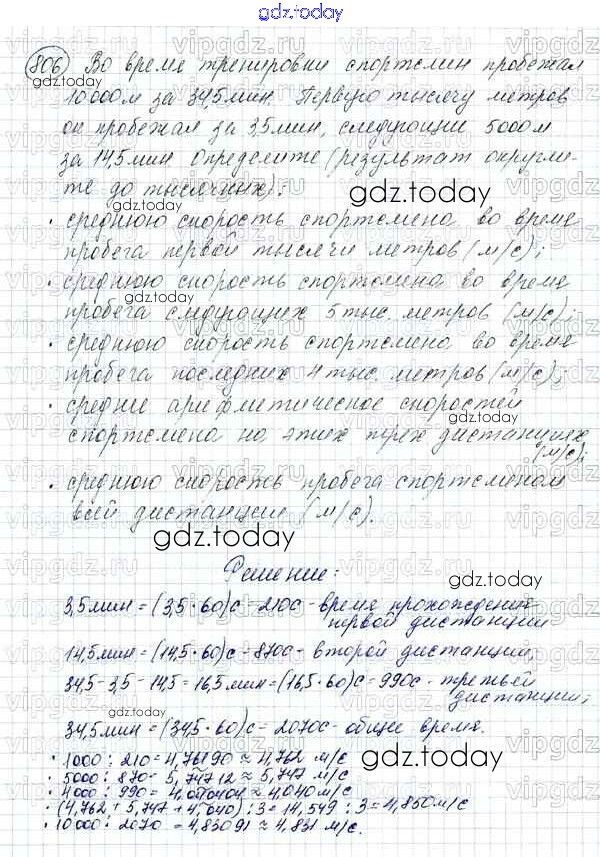 gdz.today
806 Во время тренировки спортсмен пробежал
10000м за 34,5мин. Первую тысячу метров
он пробежал за 3,5мин, следующие 5000м
за 14,5мин. Определите (результат округли-
те до тысячных):
gdz.today
• среднюю скорость спортсмена во время
пробега первой тысячи метров (м/с);
gdz.today
• среднюю скорость спортсмена во время
gdz.today
пробега следующих 5 тыс. метров (м/с);
• среднюю скорость спортсмена во время
gdz.today
пробега последних 4 тыс. метров (м/с);
• средние арифметическое скоростей
gdz.today
спортсмена на этих трех дистанциях
(м/с);
• среднюю скорость пробега спортсменом
gdz.today
всей дистанции (м/с).
gdz.today
Решение:
gdz.today
3,5мин = (3,5·60)с = 210с - время прохождения
первой дистанции
14,5мин = (14,5·60)с = 870с - второй дистанции;
34,5 - 3,5 - 14,5 = 16,5мин = (16,5·60)с = 990с - третьей
gdz.today
дистанции;
gdz.today
34,5мин = (34,5·60)с = 2070с - общее время.
• 1000 : 210 = 4,76190 ≈ 4,762 м/с
• 5000 : 870 = 5,74712 ≈ 5,747 м/с
gdz.today
• 4000 : 990 = 4,040404 ≈ 4,040 м/с
• (4,762 + 5,747 + 4,040) : 3 = 14,549 : 3 = 4,850м/с
gdz.today
• 10000 : 2070 = 4,83091 ≈ 4,831 м/с.